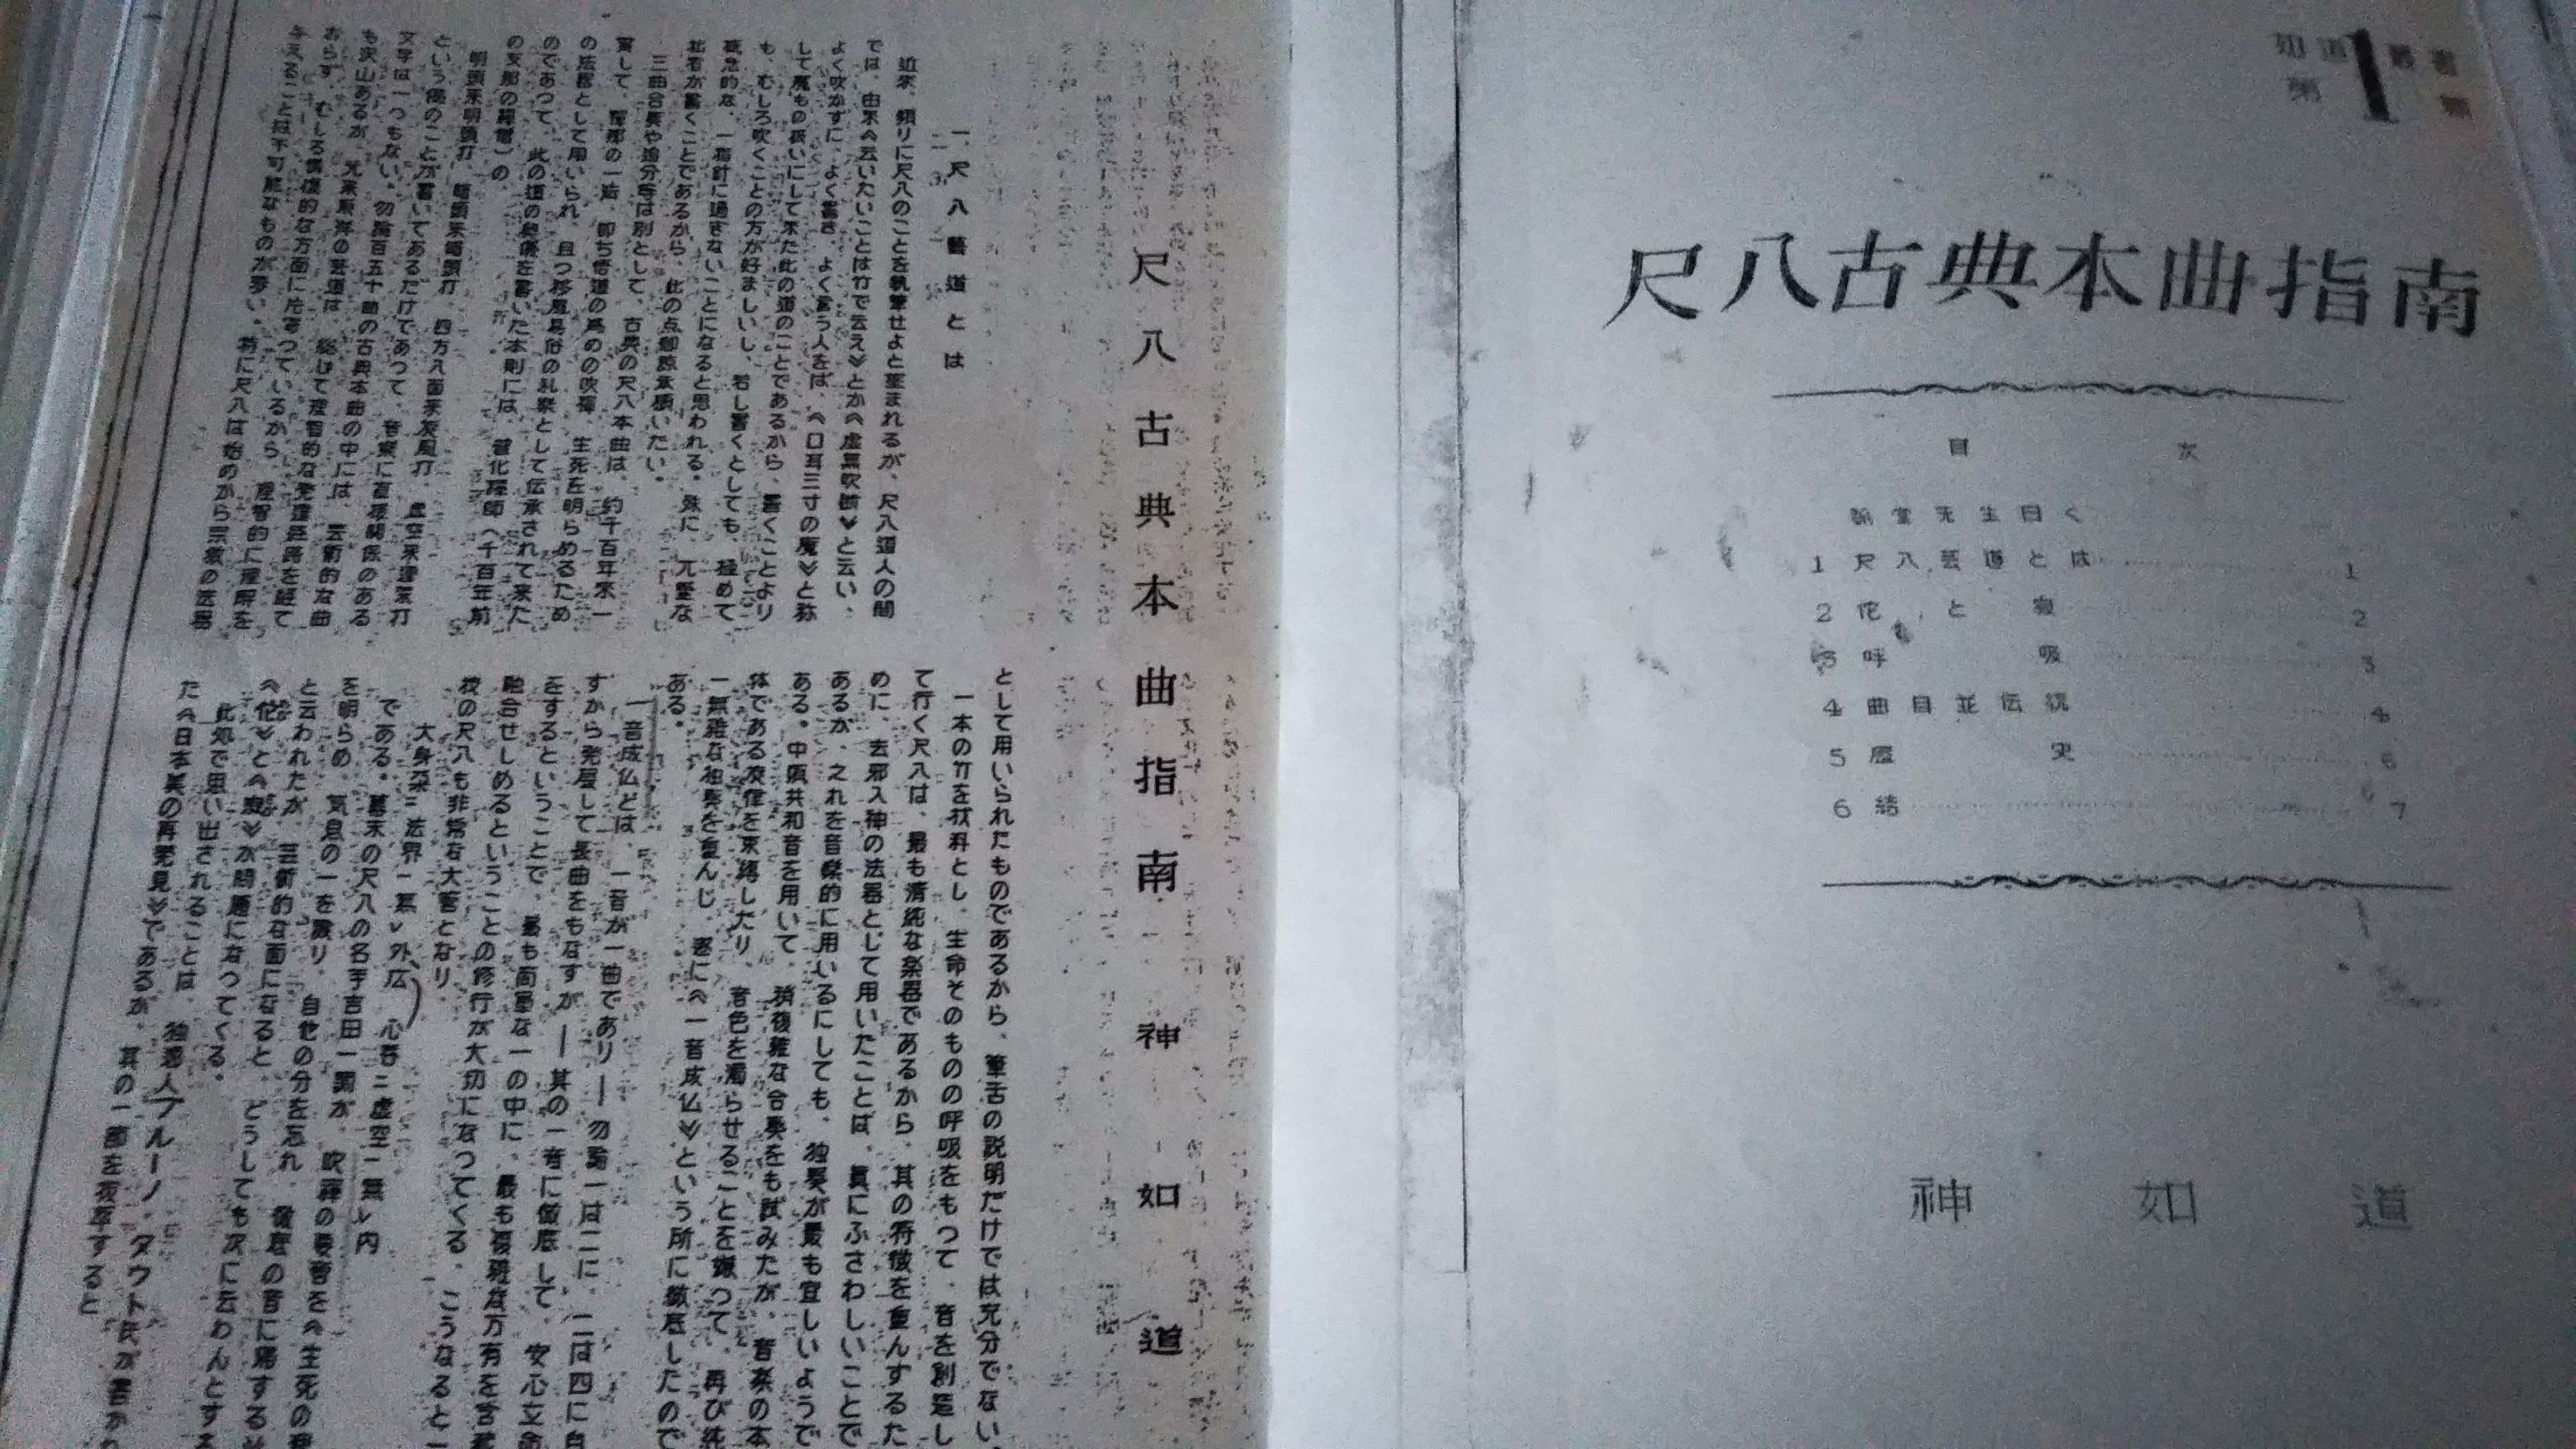 如道叢書
第1篇
尺八古典本曲指南
目次
先生曰く
1 尺八芸道とは 1
2 侘と寂 2
3 呼吸 3
4 曲目並伝説 4
5 歴史 6
6 結 7
神如道
尺八古典本曲指南 神如道
一、尺八藝道とは
近来、頻りに尺八のことを執筆せよと望まれるが、尺八道人の間
では、由来《云いたいことは竹で云え》とか《虚無吹断》と云い、
よく吹かずに、よく書き、よく言う人をば、《口耳三寸の魔》と称
して魔もの扱いにして来た此の道のことであるから、書くことより
も、むしろ吹くことの方が好ましいし、若し書くとしても、極めて
概念的な、一指針に過ぎないことになると思われる。殊に、兀堅な
拙者が書くことであるから、此の点御諒承願いたい。
三曲合奏や追分等は別として、古典の尺八本曲は、約千百年来一
貫して、禅那の一法、即ち悟道の為めの吹禅、生死を明らめるため
の法器として用いられ、且つ移風易俗の礼楽として伝承されて来た
のであつて、此の道の奥儀を書いた本則には、普化禅師（千百年前
の支那の禅僧）の、
明頭来明頭打、暗頭来暗頭打、四方八面来旋風打、虚空来連架打
という偈のことが書いてあるだけであつて、音楽に直接関係のある
文字は一つもない。勿論百五十曲の古典本曲の中には、芸術的な曲
も沢山あるが、元来東洋の芸道は、総じて理智的な発達経路を経て
おらず、むしろ情操的な方面に片寄つているから、理智的に理解を
与えることは不可能なものが多い。特に尺八は始めから宗教の法器
として用いられたものであるから、筆舌の説明だけでは充分でない。
一本の竹を材料とし、生命そのものの呼吸をもつて、音を創造し
て行く尺八は、最も清純な楽器であるから、其の特徴を重んずるた
めに、去邪入神の法器として用いたことは、真にふさわしいことで
あるが、之れを音楽的に用いるにしても、独奏が最も宜しいようで
ある。中頃共和音を用いて、稍複雑な合奏をも試みたが、音楽の本
体である旋律を束縛したり、音色を濁らせることを嫌つて、再び純
一無雑な独奏を重んじ、遂に《一音成仏》という所に徹底したので
ある。
一音成仏とは、一音が一曲であり―勿論一は二に、二は四に自
すから発展して長曲をもなすが―其の一音に徹底して、安心立命
をするということで、最も簡単な一の中に、最も複雑な万有を含
融合せしめるということの修行が大切になつてくる。こうなると一
枝の尺八も非常な大管となり、
大身充ニ法界一無レ外広 心呑ニ虚空ニ無レ内
である。幕末の尺八の名手吉田一調が、吹禅の妻音を《生死の
を明らめ、気息の一を識り、自他の分を忘れ、微底の音に帰する
と云われたが、芸術的な面になると、どうしても次に云わんとする
《侘》と《寂》が問題になつてくる。
此処で思い出されることは、独逸人ブルーノ・タウト氏が書か
た《日本美の再発見》であるが、其の一節を抜萃すると